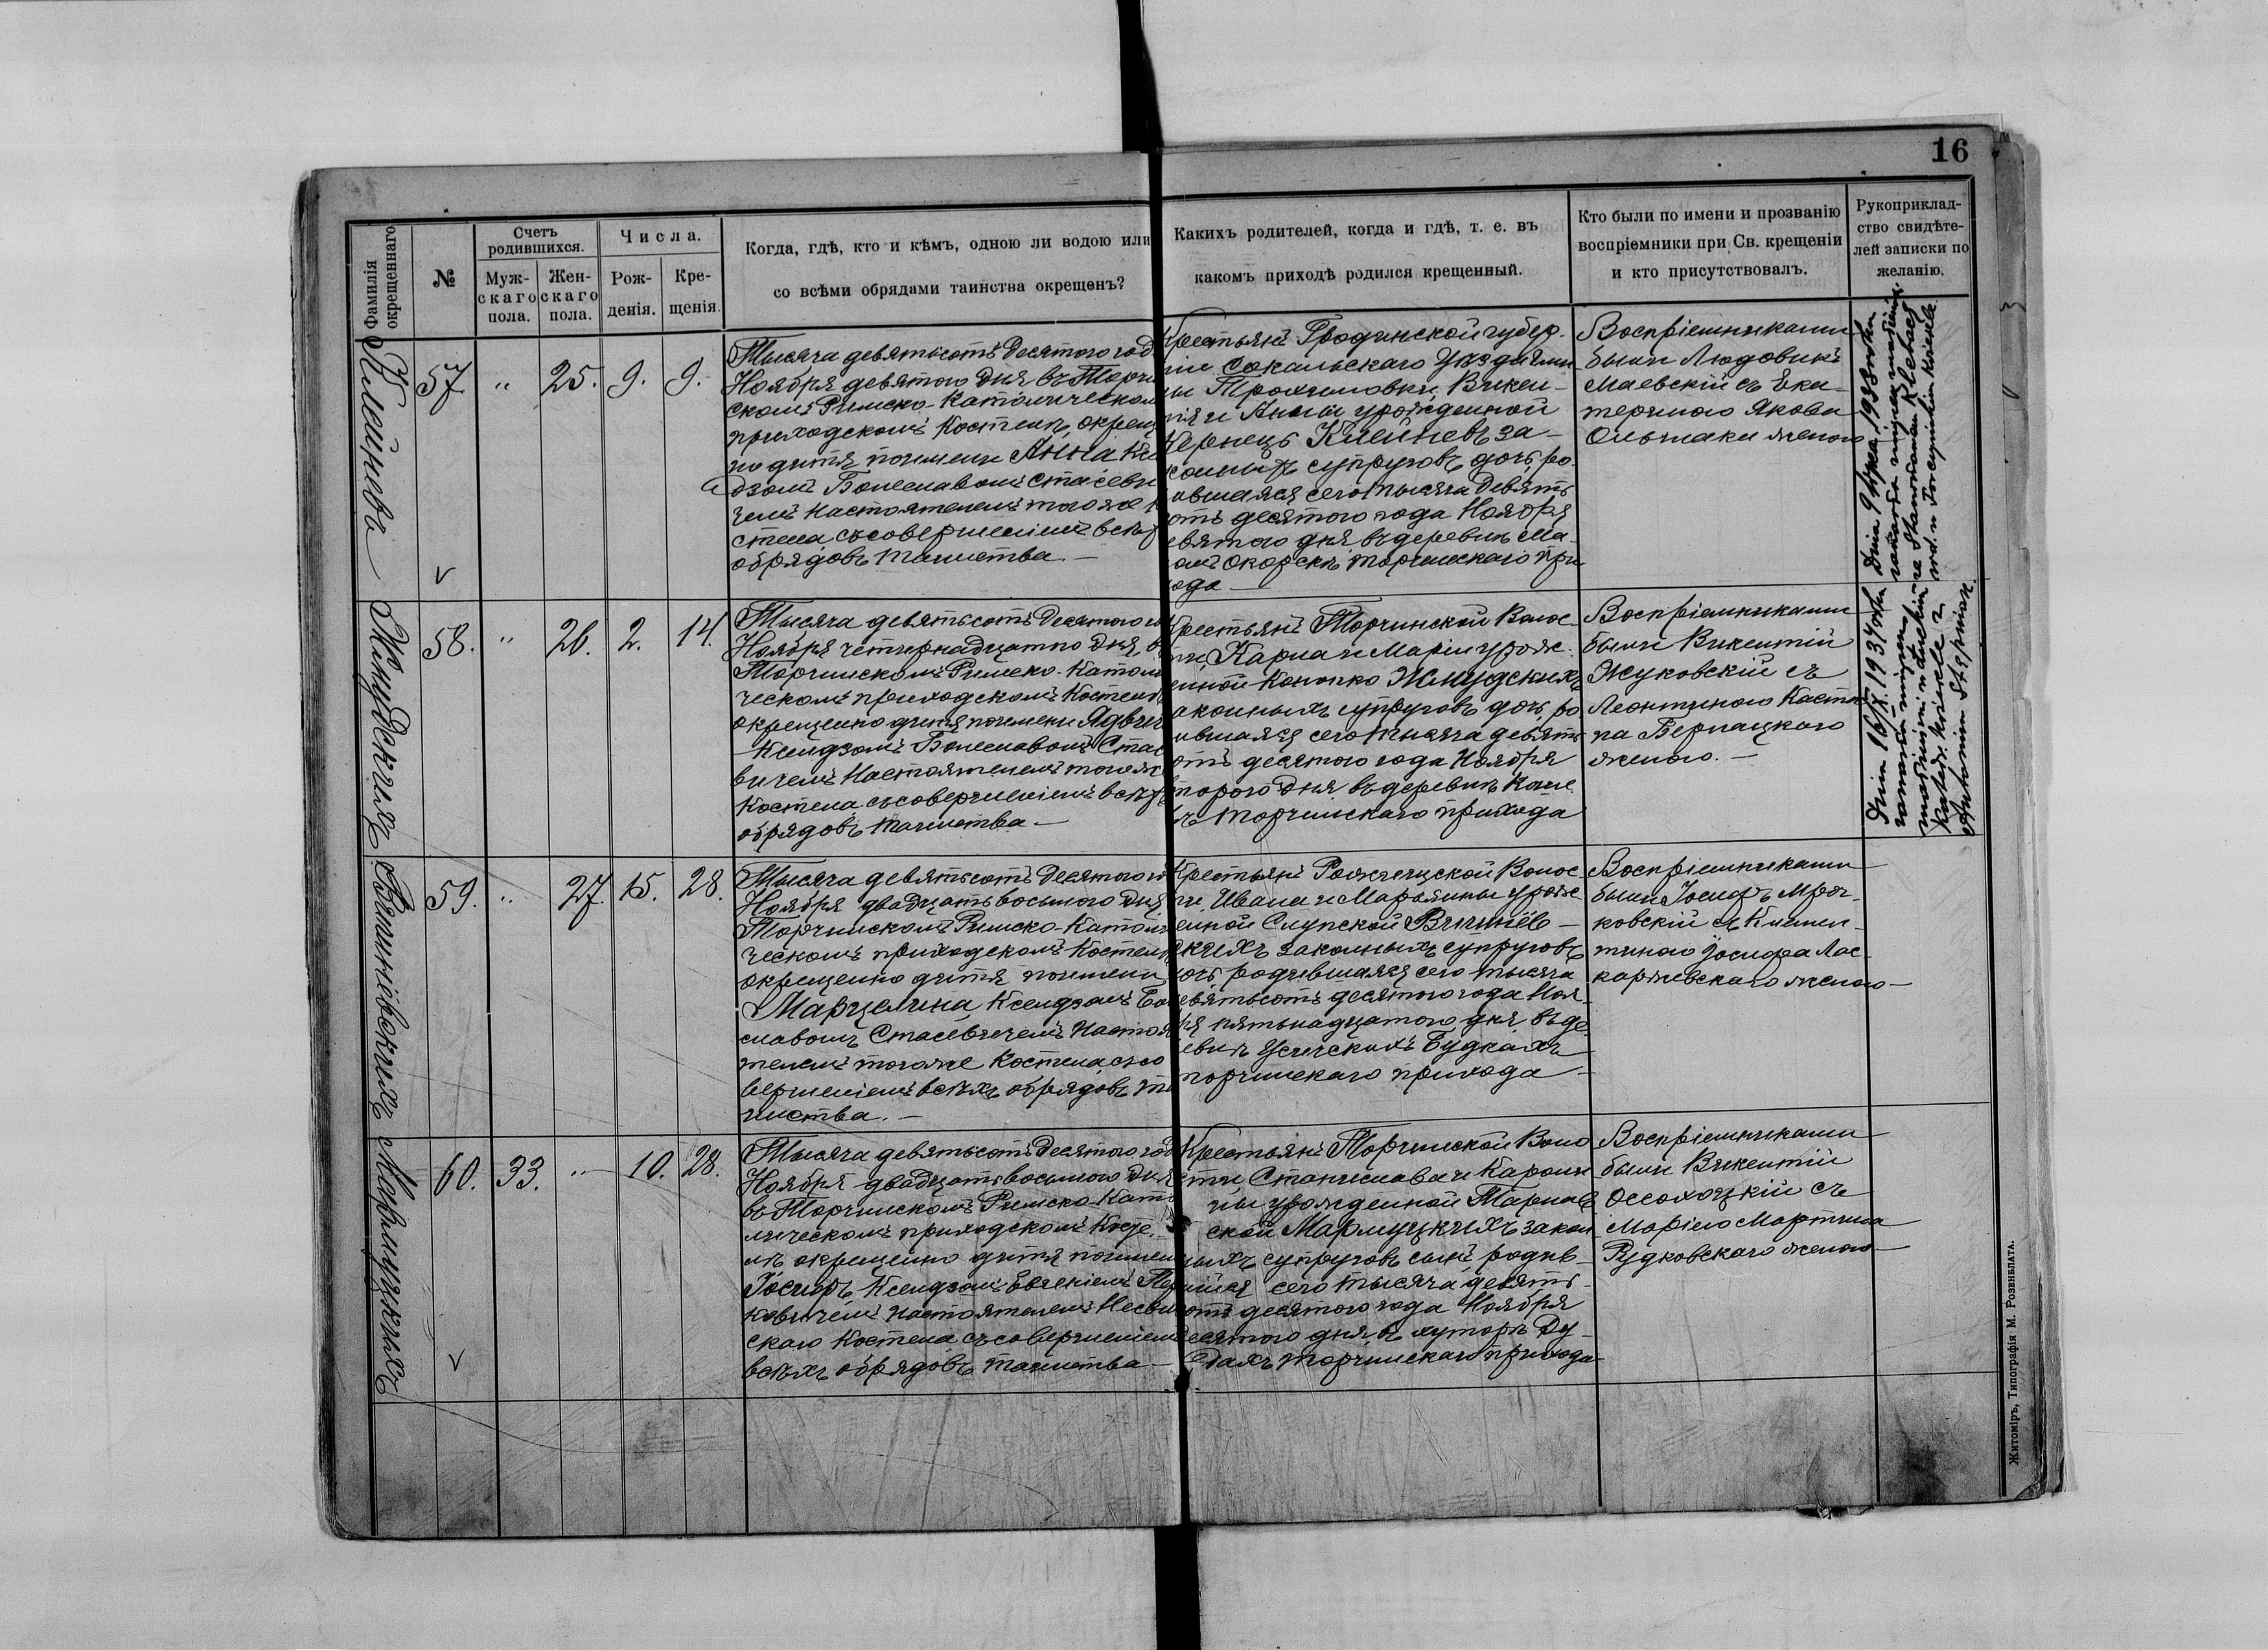 16
Фамилія окрещеннаго
№
Счетъ родившихся.
Муж-
скаго
пола.
Жен-
скаго
пола.
Числа.
Рож-
денія.
Кре-
щенія.
Когда, гдѣ, кто и кѣмъ, одною ли водою или
со всѣми обрядами таинства окрещенъ?
Какихъ родителей, когда и гдѣ, т. е. въ
какомъ приходѣ родился крещенный.
Кто были по имени и прозванію
воспріемники при Св. крещеніи
и кто присутствовалъ.
Рукоприклад-
ство свидѣте-
лей записки по
желанію.
57. " 25. 9. 9.
Тысяча девятьсотъ десятого год
Ноября девятого дня въ Торчи
скомъ Римско-Католическом
приходскомъ Костелѣ окрещ
но дитя по имени Анна Ксе
дзомъ Болеславомъ Стасеви
чемъ Настоятелемъ того же
стела съ совершеніемъ всѣх
обрядовъ таинства.—
Крестьянъ Гродненской губер-
ніи Сокальскаго уѣзда гми
ны Викен-
тія и Анны урожденной
Клейневъ за-
конныхъ супруговъ дочь, ро-
ившаяся сего тысяча девять
отъ десятого года Ноября
евятого дня въ деревнѣ Ма-
омъ Окорскѣ торчинскаго при
ода—
Воспріемниками
были Людовикъ
Маевскій съ Ека-
териною Якова
женою
58. " 26. 2. 14.
Жмудскихъ
Тысяча девятьсотъ десятого го
Ноября четырнадцатого дня, в
Торчинскомъ Римско-Католи
ческомъ приходскомъ Костелѣ
окрещенно дитя по имени Ядвиг
Ксендзомъ Болеславомъ Стас
вичемъ Настоятелемъ того же
Костела съ совершеніемъ всѣх
обрядовъ таинства—
Крестьянъ Торчинской Волос-
ти, Карла и Маріи урож-
енной Конопко Жмудскихъ
аконныхъ супруговъ дочь, ро-
ившаяся сего тысяча девять
отъ десятого года Ноября
торого дня въ деревнѣ
торчинскаго прихода
Воспріемниками
были Викентій
Жуковскій съ
Леонтиною
Бернацкого
женою.—
59. " 27. 15. 28.
Тысяча девятьсотъ десятого го
Ноября двадцать восьмого дня
Торчинскомъ Римско-Католи
ческомъ приходскомъ Костел
окрещенно дитя по имени
Марцелина Ксендзомъ Бол
славомъ Стасевичемъ Настоя
телемъ того же Костела съ со
вершеніемъ всѣхъ обрядовъ та
инства.—
Крестьянъ Рожищской Волос-
ти, Ивана и Маріанны урож-
енной Слупской Вишнёв-
скихъ законныхъ супруговъ
очь родившаяся сего тысяча
евятьсотъ десятого года Ноя-
ря пятьнадцатого дня въ де-
евнѣ Усичскихъ Будкахъ
торчинскаго прихода—
Воспріемниками
были Іосифъ Мроч-
ковскій съ Клемен-
тиною Іосифа Лас-
каржевскаго женою—
60. 33. " 10. 28.
Тысяча девятьсотъ десятого год
Ноября двадцать восьмого дня
въ Торчинскомъ Римско-Като
лическомъ приходскомъ Косте-
лѣ окрещенно дитя по имен
Іосифъ Ксендзомъ Евгеніемъ
ковичемъ Настоятелемъ
скаго Костела съ совершеніем
всѣхъ обрядовъ таинства—
Крестьянъ Торчинской Воло
сти Станислава и Кароли
ны урожденной
ской закон
ныхъ супруговъ сынъ родив-
шійся сего тысяча девять-
отъ десятого года Ноября
есятого дня, въ хуторѣ Ду-
торчинскаго прихода
Воспріемниками
были Викентій
Оссолоцкій съ
Маріею Мартина
Рудковскаго женою—
Antonim Stępniak
Житоміръ, Типографія М. Розенблата.